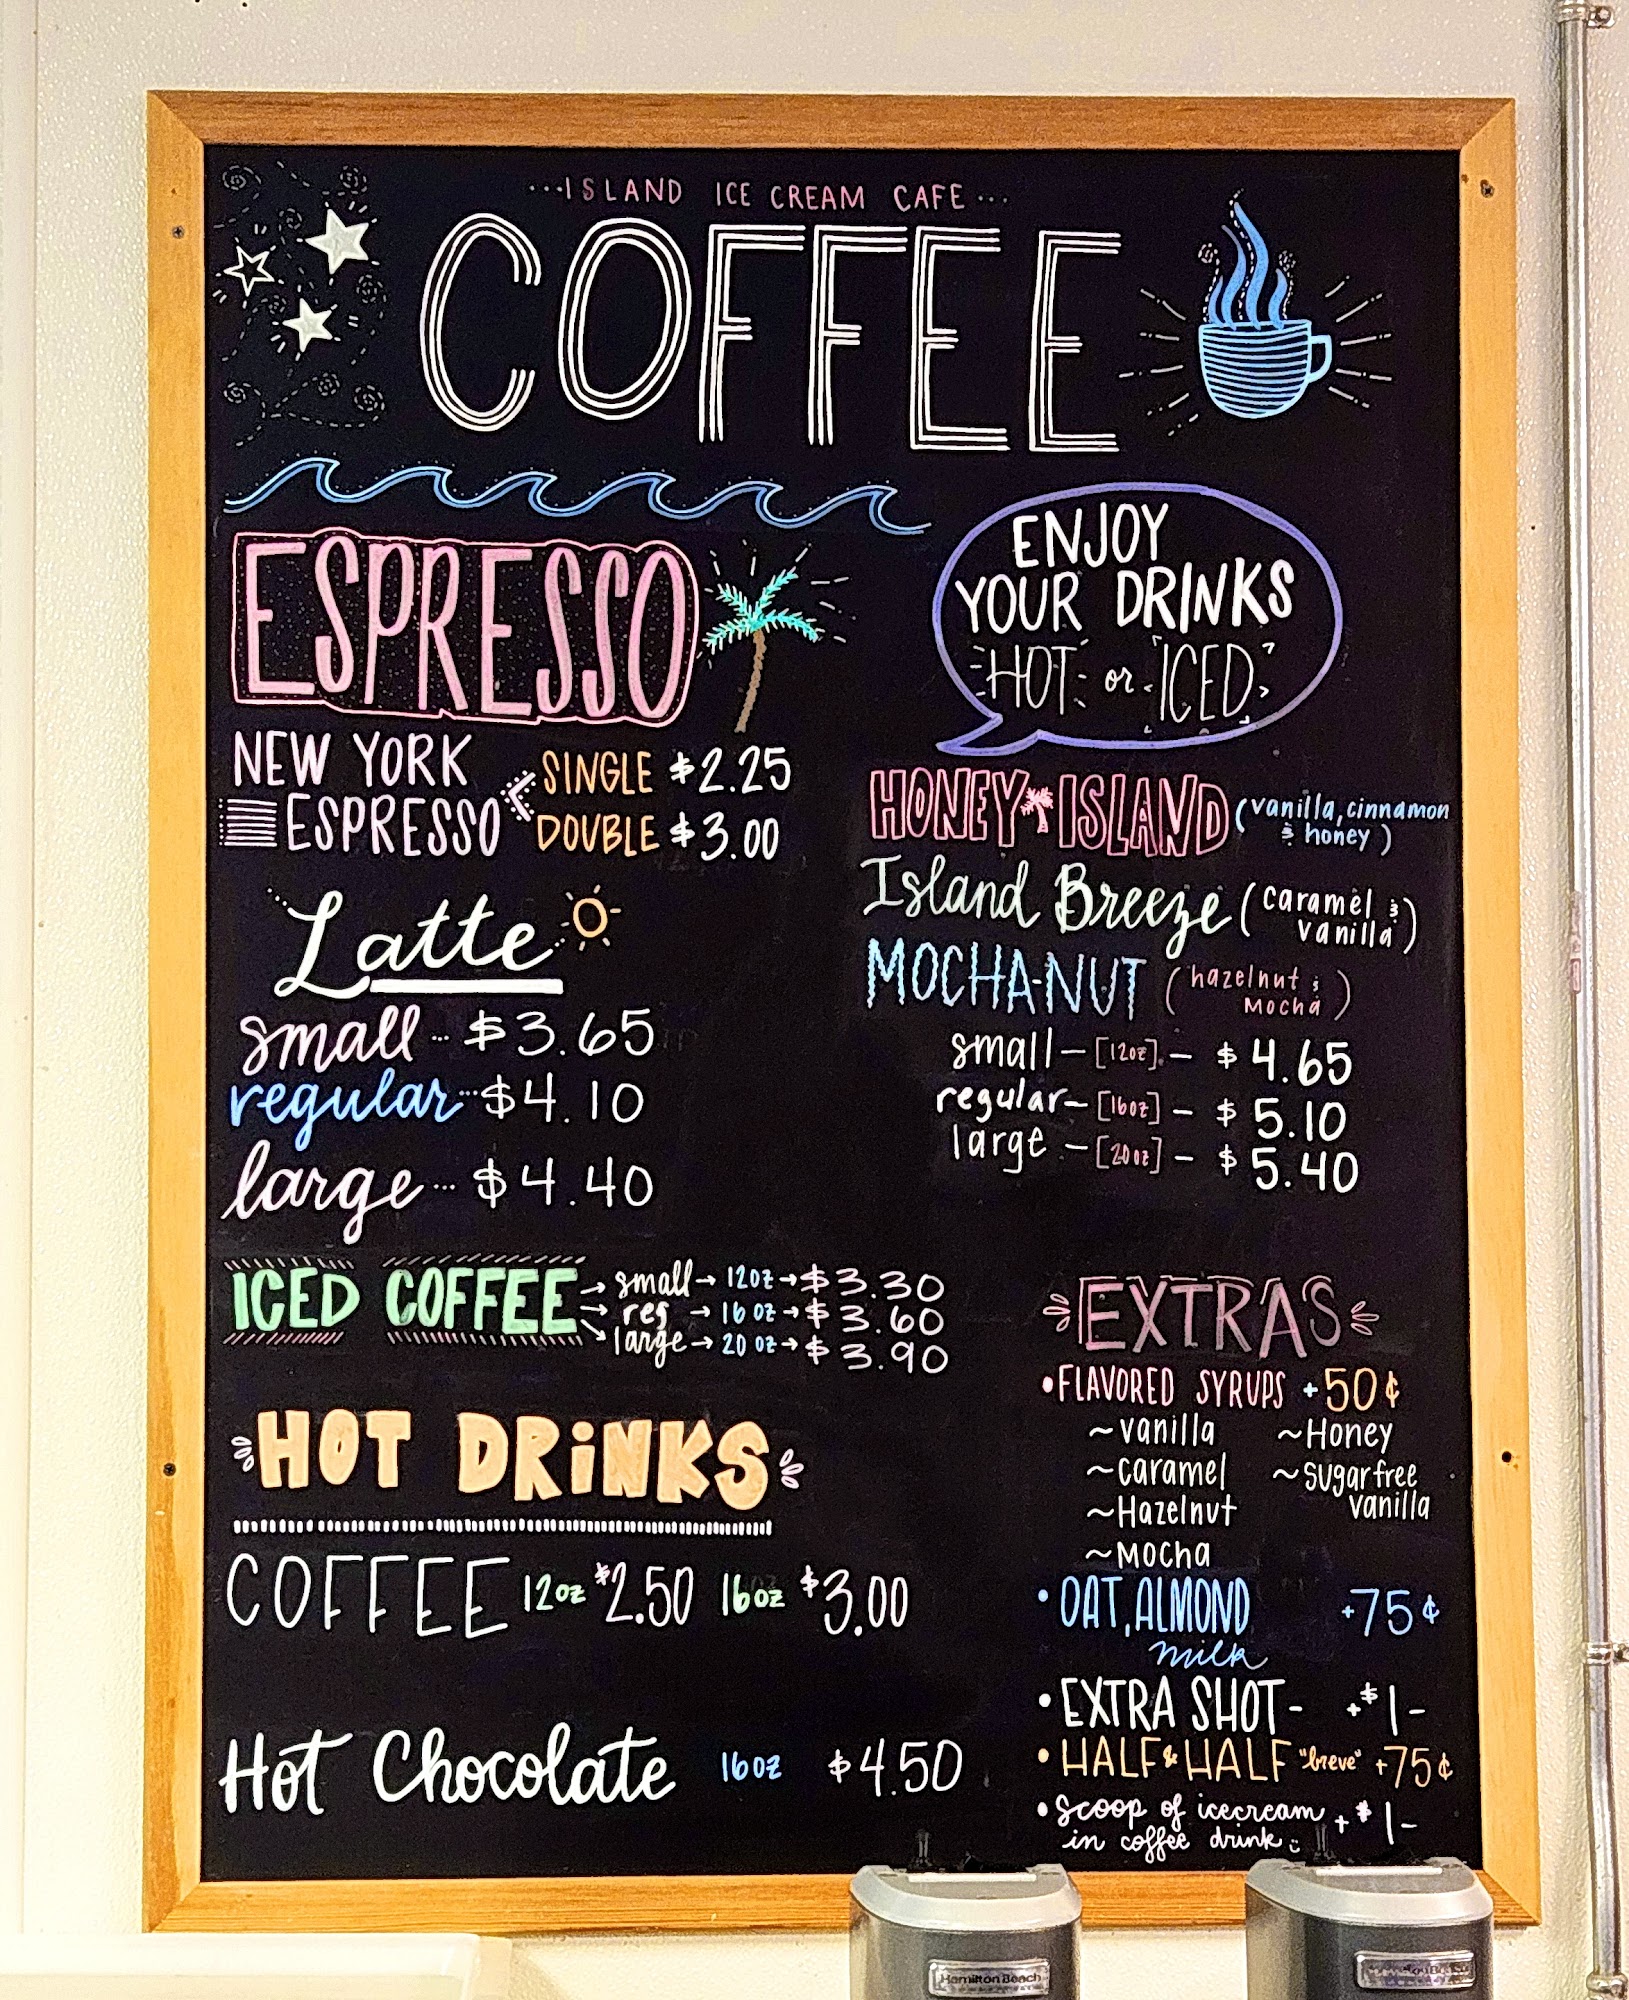 ···ISLAND ICE CREAM CAFE···
COFFEE
ESPRESSO
NEW YORK
ESPRESSO
SINGLE $2.25
DOUBLE $3.00
Latte
small ··· $3.65
regular ··· $4.10
large ··· $4.40
ICED COFFEE
small → 12oz → $3.30
reg → 16oz → $3.60
large → 20oz → $3.90
HOT DRiNKS
COFFEE 12oz $2.50 16oz $3.00
Hot Chocolate 16oz $4.50
ENJOY
YOUR DRINKS
HOT or ICED
HONEY ISLAND (vanilla, cinnamon
& honey)
Island Breeze (caramel &
vanilla)
MOCHA-NUT (hazelnut &
mocha)
small — [12oz] — $4.65
regular — [16oz] — $5.10
large — [20oz] — $5.40
EXTRAS
• FLAVORED SYRUPS +50¢
~vanilla ~Honey
~caramel ~sugarfree
vanilla
~Hazelnut
~Mocha
• OAT, ALMOND +75¢
milk
• EXTRA SHOT- +$1-
• HALF & HALF "breve" +75¢
• scoop of icecream +$1-
in coffee drink
Hamilton Beach